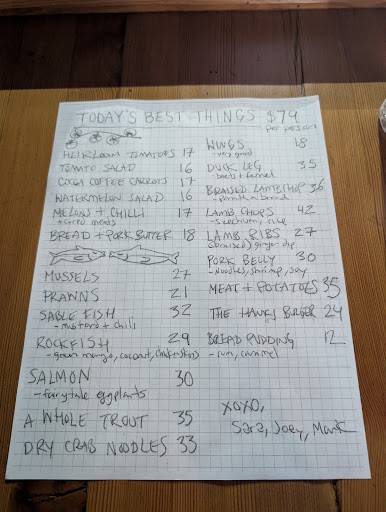 TODAY'S BEST THINGS $79
per person
HEIRLOOM TOMATOES 17
TOMATO SALAD 16
COCOA COFFEE CARROTS 17
WATERMELON SALAD 16
MELONS + CHILLI 17
+ cured meats
BREAD + PORK BUTTER 18
MUSSELS 27
PRAWNS 21
SABLE FISH 32
- mustard + chili
ROCKFISH 29
- green mango, coconut,
SALMON 30
- fairytale eggplants
A WHOLE TROUT 35
DRY CRAB NOODLES 33
WINGS 18
- very good
DUCK LEG 35
- beets + fennel
BRAISED LAMB CHOP 36
LAMB CHOPS 42
LAMB RIBS 27
(braised) ginger dip
PORK BELLY 30
- noodles, shrimp, soy
MEAT + POTATOES 35
THE HAWKS BURGER 24
BREAD PUDDING 12
- rum, caramel
XOXO,
Sara, Joey, Mark